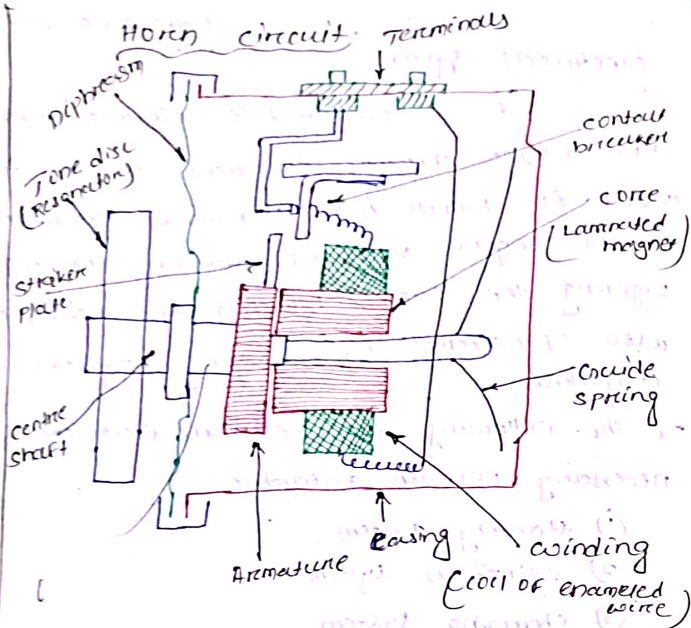 Horn circuit
Terminals
Diphragm
Tone disc
(Resonator)
contact
breaker
core
(Laminated
magnet)
striker
plate
Guide
spring
centre
shaft
Armature
casing
winding
(coil of enameled
wire)